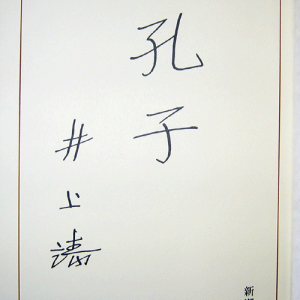 孔子
井上靖
新潮